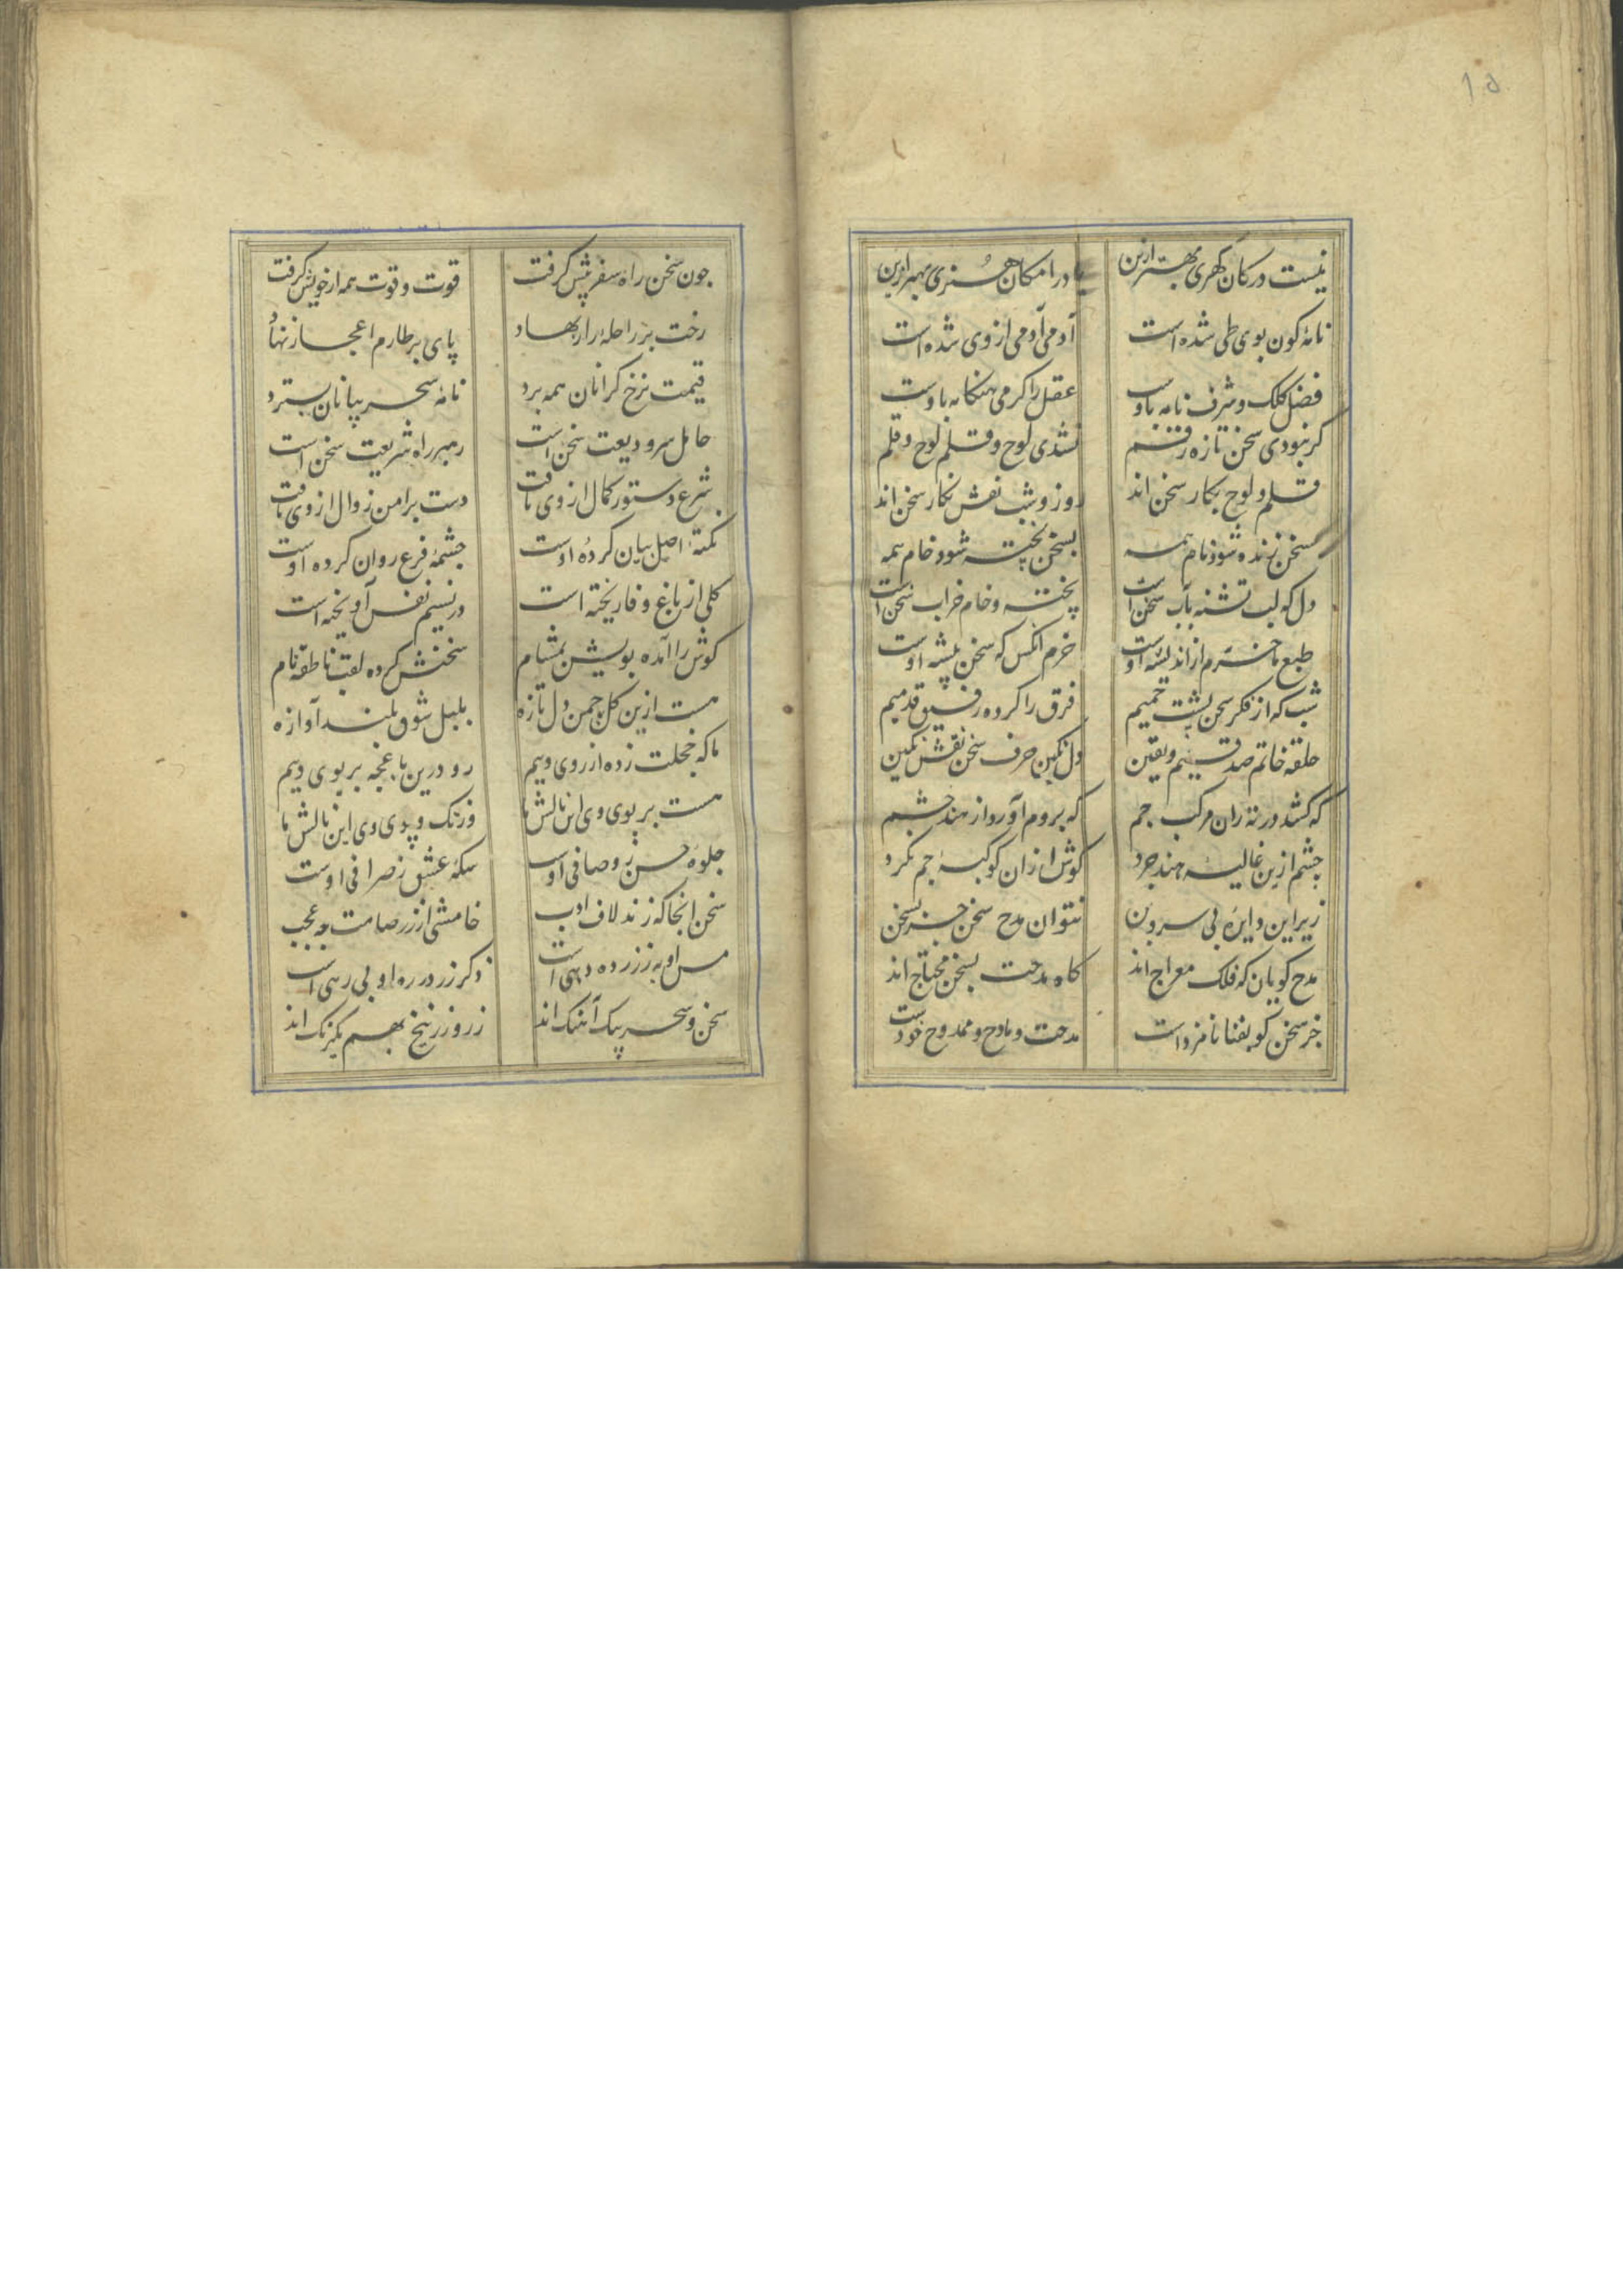 ۱۵
نیست در کان گهری بهتر ازین یا در امکان هنری بهتر ازین
نامهٔ کون بوی طی شده است آدمی آدمی از وی شده است
فضل کلک و شرف نامه باوست عقل را کرمی هنکامه باوست
کر نبودی سخن تازه رقم نشدی لوح و قلم لوح و قلم
قلم و لوح بکار سخن اند روز و شب نقش نکار سخن اند
سخن زنده شود نام همه بسخن پخته شود خام همه
دل که لب تشنه بآب سخن است پخته و خام خراب سخن است
طبع ما خرم از اندیشه اوست خرم انکس که سخن پیشه اوست
شب که از فکر سخن پشت خمیم فرق را کرده رفیق قدمیم
حلقه خاتم صدقیم و یقین دل نکین حرف سخن نقش نکین
که کشد در ته ران مرکب جم که بروم آورد از هند حشم
چشم ازین غالیه هند جرد کوش ازان کوکبهٔ جم نکرد
زیر این دایرهٔ بی سر و بن نتوان مدح سخن جز بسخن
مدح کویان که فلک معراج اند کاه مدحت بسخن محتاج اند
جز سخن کو بفنا نامزد است مدحت و مادح و ممدوح خود است
جون سخن راه سفر پیش کرفت قوت و قوت همه از خویش کرفت
رخت بر راحلهٔ راز نهاد پای بر طارم اعجاز نهاد
قیمت نرخ کرانان همه برد نامهٔ سحر بیانان بسترد
حامل سر ودیعت سخن است رهبر راه شریعت سخن است
شرع دستور کمال از وی یافت دست بر امن زوال از وی یافت
نکتهٔ اصل بیان کردهٔ اوست جشمهٔ فرع روان کرده اوست
کلی از باغ وفا ریخته است در نسیم نفس آویخته است
کوش را آمده بویش بمشام سخنش کرده لقب ناطقه نام
هست ازین کل جمن دل تازه بلبل شوق بلند آوازه
ما که خجلت زده از روی ویم رو درین باغجه بر بوی ویم
هست بر بوی وی این نالش ما وز تک و پوی وی این بالش ما
جلوهٔ حسن ز وصافی اوست سکهٔ عشق ز صرافی اوست
سخن انجا که زند لاف ادب خامشی از زر صامت جه عجب
مس او به ز زر ده دهی است ذکر زر در ره او بی رهی است
سخن و سحر یک آهنک اند زر و زرنیخ بهم یکرنک اند